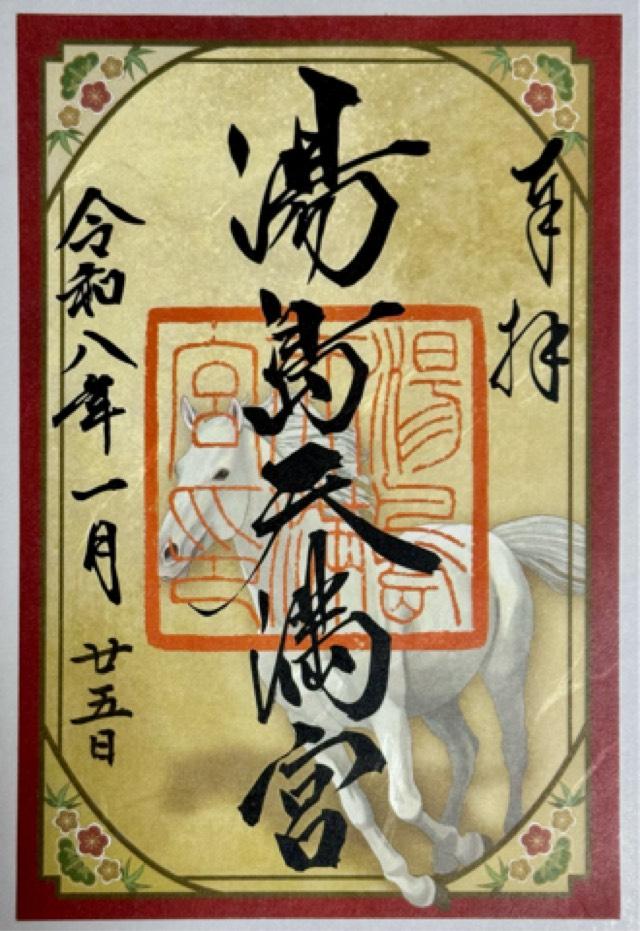 奉拝
湯島天満宮
湯島天満宮之印
令和八年一月廿五日